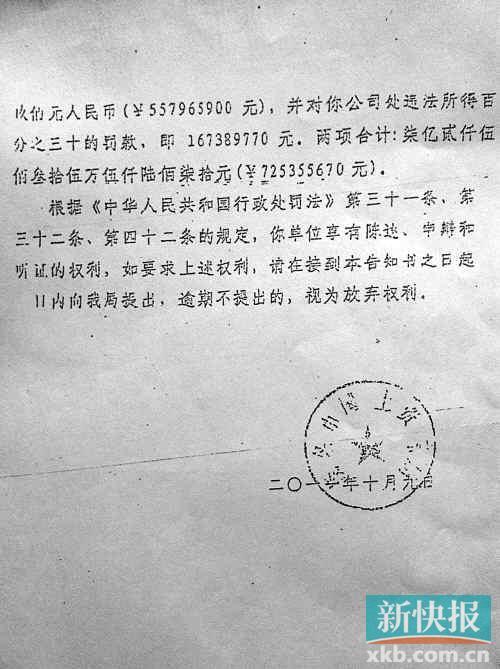 玖佰元人民币(￥557965900 元)，并对你公司处违法所得百
分之三十的罚款，即 167389770 元。两项合计:柒亿贰仟伍
佰叁拾伍万伍仟陆佰柒拾元(￥725355670 元)。
根据《中华人民共和国行政处罚法》第三十一条、第
三十二条、第四十二条的规定，你单位享有陈述、申辩和
听证的权利，如要求上述权利，请在接到本告知书之日起
日内向我局提出，逾期不提出的，视为放弃权利。
国土资
二〇一一年十月九日
新快报
xkb.com.cn